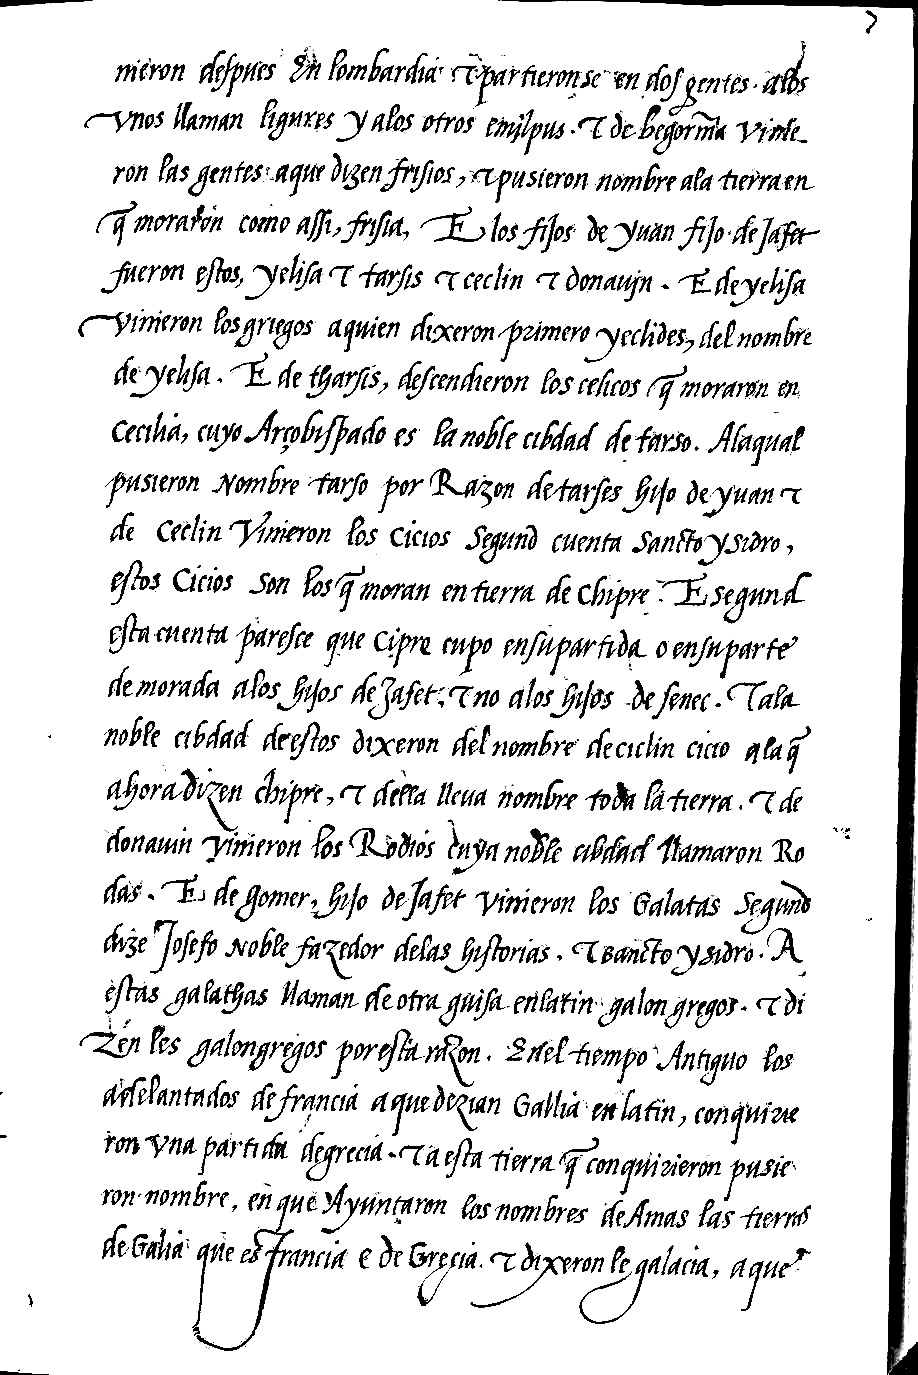 7
nieron despues En lombardia τ partieronse en dos gentes. alos
vnos llaman ligures y alos otros emilpus. τ de begorma vinie
ron las gentes aque dizen frisios, τ pusieron nombre ala tierra en
q̃ moraron como assi, frisia, E los fijos de yuan fijo de Jafet
fueron estos, yelisa τ tarsis τ ceclin τ donauin. E de yelisa
vinieron los griegos a quien dixeron primero yeclides, del nombre
de yelisa. E de tharsis, descendieron los celicos q̃ moraron en
Cecilia, cuyo Arçobispado es la noble cibdad de tarso. Alaqual
pusieron Nombre tarso por Razon de tarses hijo de yuan τ
de Ceclin Vinieron los Cicios Segund cuenta Sancto ysidro,
estos Cicios son los q̃ moran en tierra de Chipre. E segund
esta cuenta paresce que Cipre cupo ensupartida o ensuparte
de morada alos hijos de Jafet, τ no alos hijos de senec. τ ala
noble cibdad de estos dixeron del nombre de ciclin cicio ala q̃
ahora dizen chipre, τ della lleua nombre toda la tierra. τ de
donauin vinieron los Rodios cuya noble cibdad llamaron Ro
das. E de gomer, hijo de Jafet vinieron los Galatas Segund
dize Josefo Noble fazedor delas historias. τ sancto ysidro. A
estas galathas llaman de otra guisa enlatin galon gregos. τ di
Zen les galongregos por esta razon. Enel tiempo Antiguo los
adelantados de francia aque dezian Gallia en latin, conquirie
ron vna partida degrecia. τ a esta tierra q̃ conquirieron pusie
ron nombre, en que Ayuntaron los nombres de Amas las tierras
de Galia que es francia e de Grecia. τ dixeron le galacia, a que